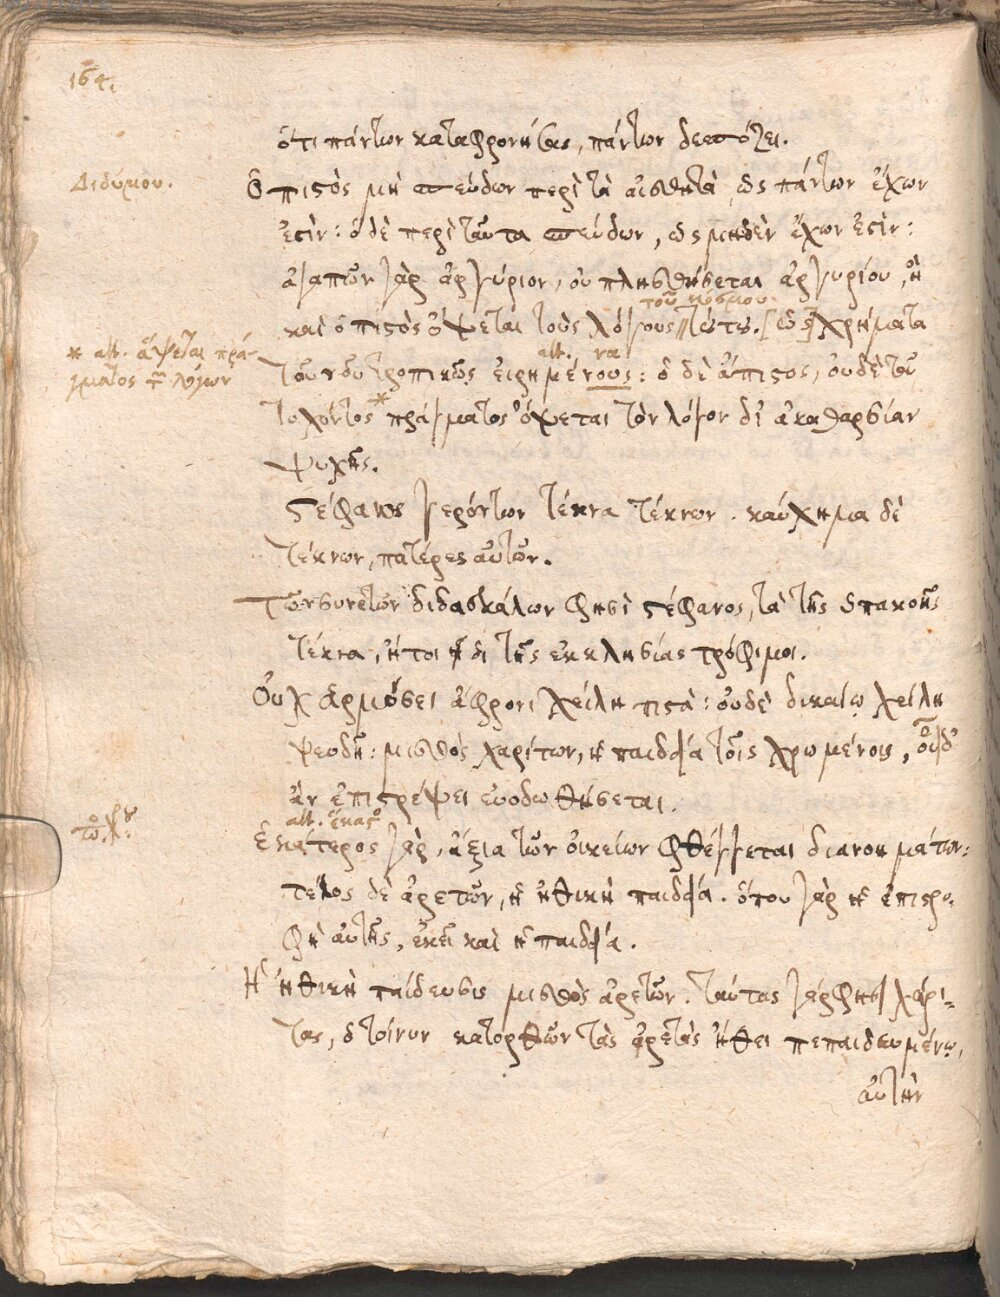 164.
ὅτι πάντων καταφρονήσας, πάντων δεσπόζει.
Διδύμου.
Ὁ πιστὸς μὴ σπεύδων περὶ τὰ αἰσθητὰ, ὡς πάντων ἔχων
ἐστίν: ὁ δὲ περὶ ταῦτα σπεύδων, ὡς μηδὲν ἔχων ἐστίν:
ἀγαπῶν γὰρ ἀργύριον, οὐ πλησθήσεται ἀργυρίου, ἢ
τοῦ κόσμου.
καὶ ὁ πιστὸς ὄψεται τοὺς λόγους τούτου. [ὡς] χρήματα
* alt. ἅψεται πρά-
γματος τ λόγων
alt. να
τοῦ νῦν τροπικῶς εἰρημένους: ὁ δὲ ἄπιστος, οὐδὲ τοῦ
τυχόντος* πράγματος ὄψεται τὸν λόγον δι' ἀκαθαρσίαν
ψυχῆς.
Στέφανος γερόντων τέκνα τέκνων. καύχημα δὲ
τέκνων, πατέρες αὐτῶν.
Τῶν συνετῶν διδασκάλων φησὶ στέφανος, τὰ τῆς ὑπακοῆς
τέκνα, ἤτοι οἱ τῆς ἐκκλησίας τρόφιμοι.
Οὐχ ἁρμόσει ἄφρονι χείλη πιστά: οὐδὲ δικαίῳ χείλη
ψευδῆ: μισθὸς χαρίτων, ἡ παιδεία τοῖς χρωμένοις, οὗ δ'
ἂν ἐπιστρέψει εὐοδωθήσεται.
alt. ἕκας
Ἑκάτερος γὰρ, ἄξια τῶν οἰκείων φθέγγεται διανοημάτων:
τέλος δὲ ἀρετῶν, ἡ ἠθικὴ παιδεία. ὅπου γὰρ ἡ ἐπιστρο-
φὴ αὐτῆς, ἐκεῖ καὶ ἡ παιδεία.
Ἡ ἠθικὴ παίδευσις μισθὸς ἀρετῶν. ταύτας γάρ φησι χάρι-
τας, ὁ τοίνυν κατορθῶν τὰς ἀρετὰς ἤθει πεπαιδευμένῳ,
αὐτὴν